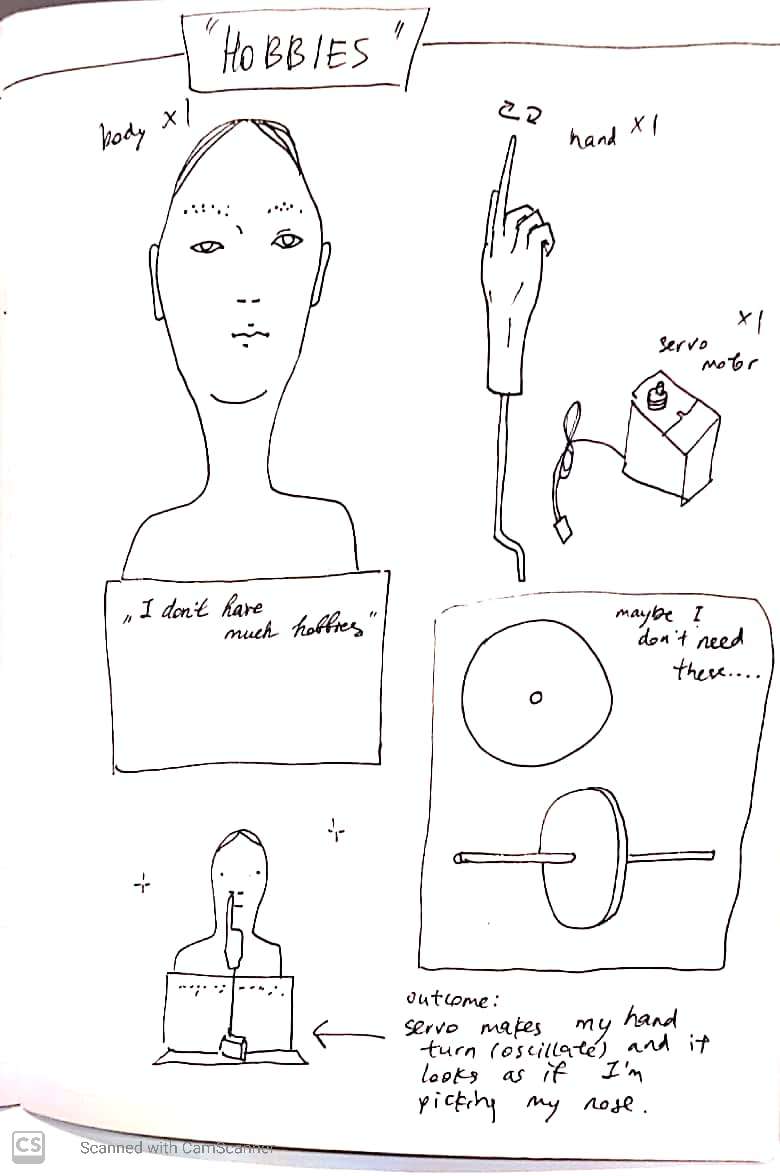 "HOBBIES"
body x1
hand x1
x1
servo
motor
„I don't have
much hobbies"
maybe I
don't need
these....
outcome:
servo makes my hand
turn (oscillate) and it
looks as if I'm
picking my nose.
CS
Scanned with CamScanner